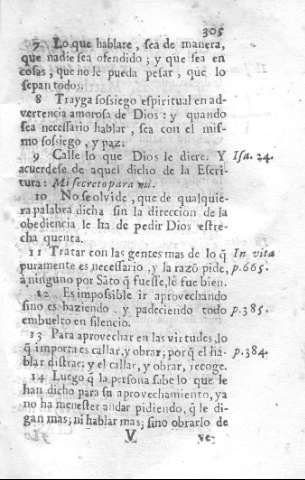 305
7 Lo que hablare, sea de manera,
que nadie sea ofendido; y que sea en
cosas, que no le pueda pesar, que lo
sepan todos.
8 Trayga sossiego espiritual en ad-
vertencia amorosa de Dios: y quando
sea necessario hablar, sea con el mis-
mo sossiego, y paz.
9 Calle lo que Dios le diere. Y Isa. 24.
acuerdese de aquel dicho de la Escri-
tura: Mi secreto para mi.
10 No se olvide, que de qualquie-
ra palabra dicha sin la direccion de la
obediencia le ha de pedir Dios estre-
cha quenta.
11 Tratar con las gentes mas de lo q̃ In vita
puramente es necessario, y la razõ pide, p.665.
à ninguno por Sãto q̃ fuesse, lo fue bien.
12 Es impossible ir aprovechando
sino es haziendo, y padeciendo todo p.385.
embuelto en silencio.
13 Para aprovechar en las virtudes, lo
q̃ importa es callar, y obrar; porq̃ el ha- p.384.
blar distrae; y el callar, y obrar, recoge.
14 Luego q̃ la persona sabe lo que le
han dicho para su aprovechamiento, ya
no ha menester andar pidiendo, q̃ le di-
gan mas; ni hablar mas; sino obrarlo de
V